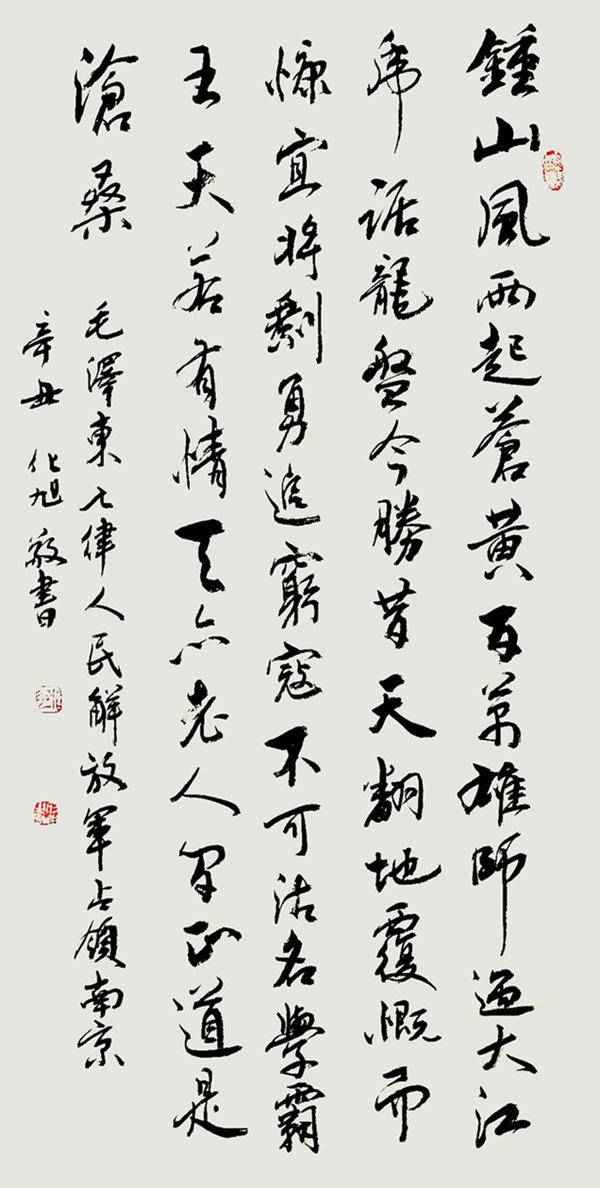 鍾山風雨起蒼黃百萬雄師過大江
虎踞龍盤今勝昔天翻地覆慨而
慷宜將剩勇追窮寇不可沽名學霸
王天若有情天亦老人間正道是
滄桑
毛澤東七律人民解放軍占領南京
辛丑化旭敬書